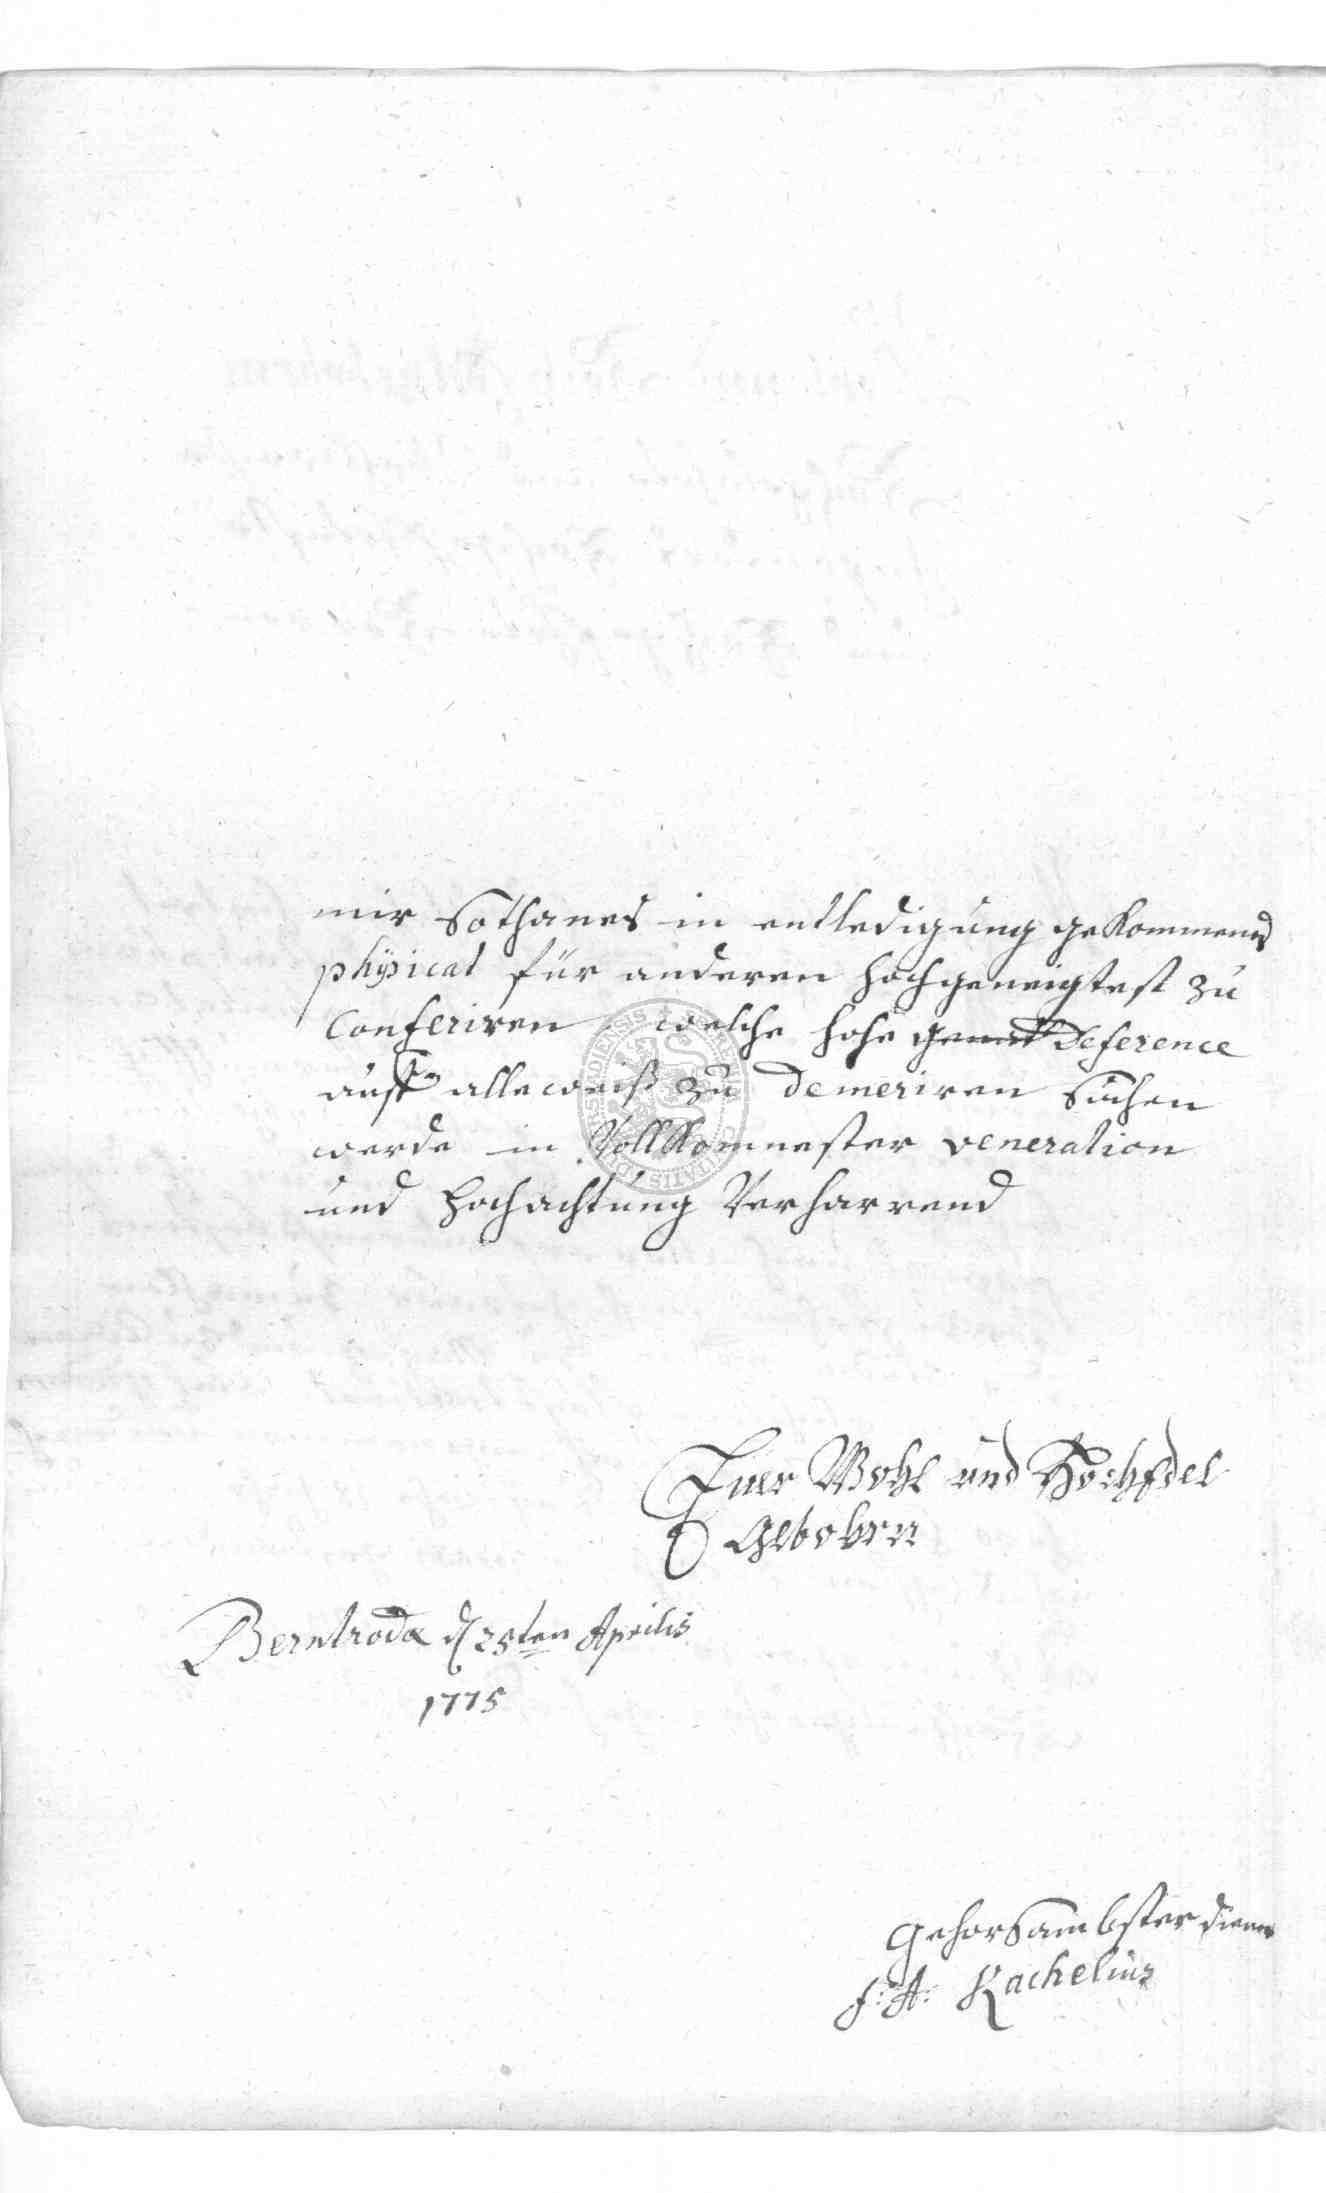 mir Sothanes in entledigung gekommenes
physicat für anderen hochgeneigtest zu
Conferiren welche hohe Deference
auff alleweiß zu demeriren suchen
werde in Vollkomnester veneration
und Hochachtung Verharrend
Euer Wohl und HochEdel
Gebohrn
Berntroda d 25ten Aprilis
1775
gehorSambster diener
f: A: Kachelius